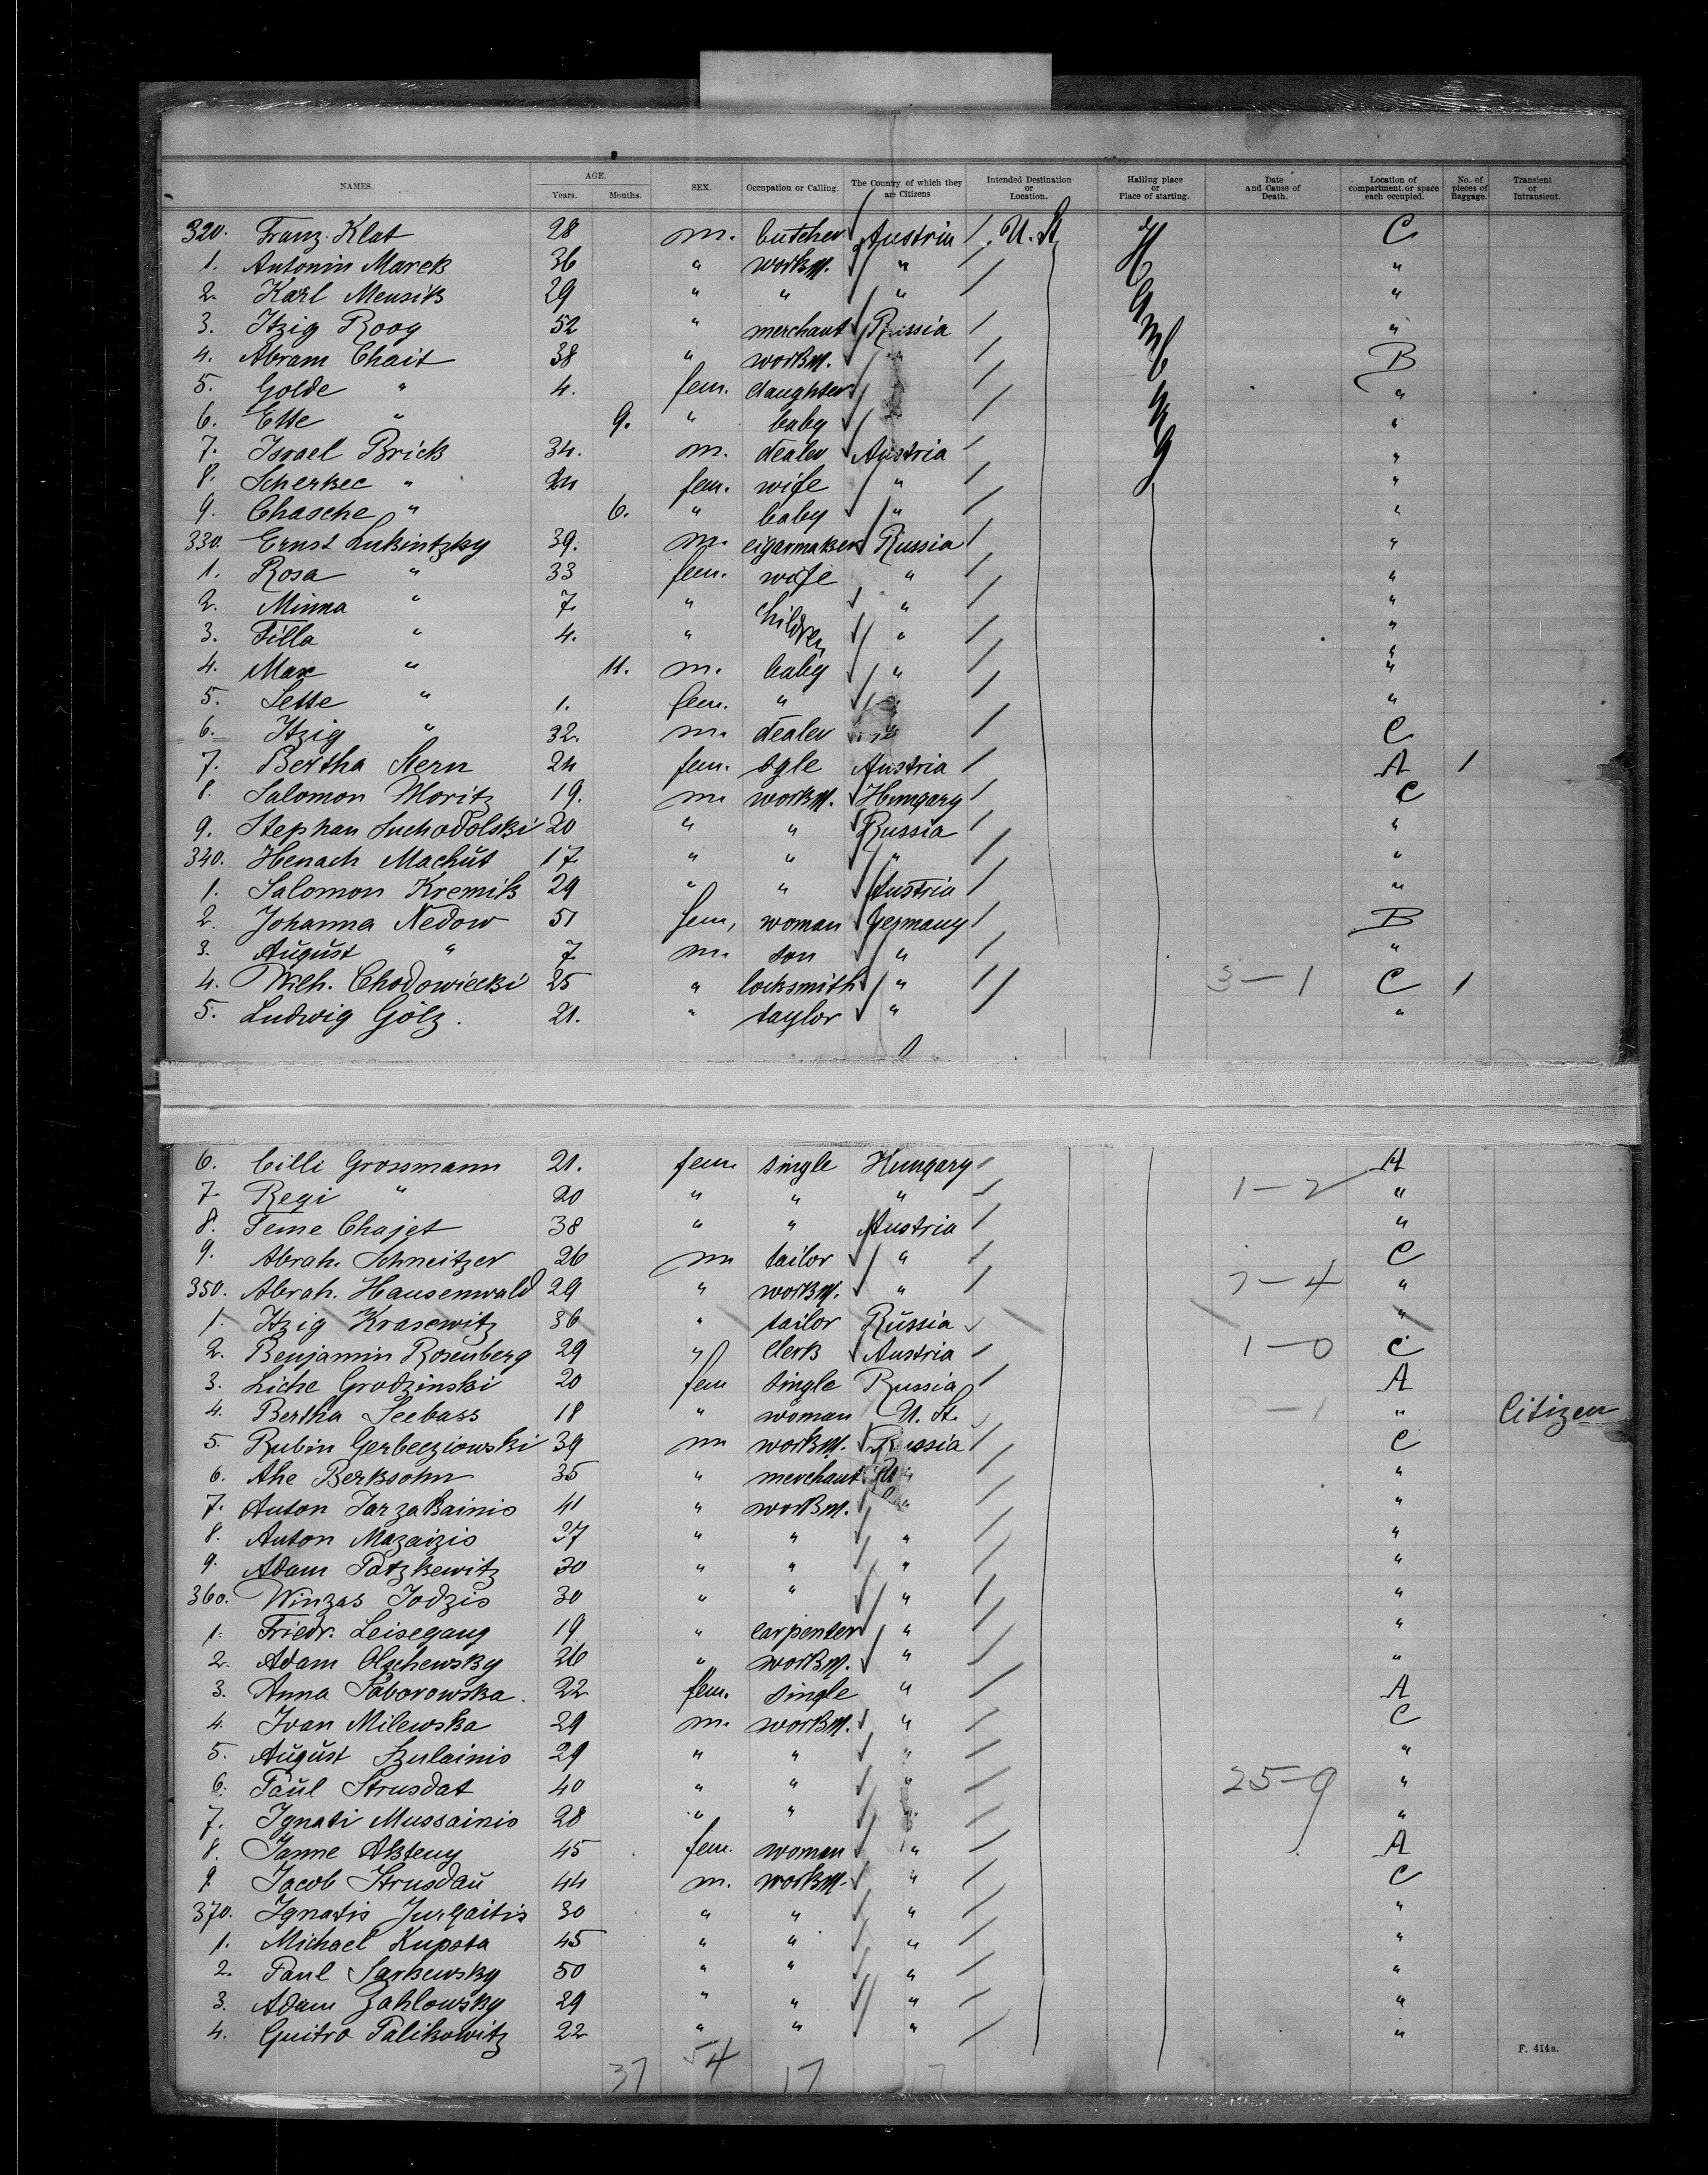 NAMES. AGE. Years. Months. SEX. Occupation or Calling. The Country of which they are Citizens Intended Destination or Location. Hailing place or Place of starting. Date and Cause of Death. Location of compartment, or space each occupied. No. of pieces of Baggage. Transient or Intransient.
320. Franz Klat 28 m. butcher Austria U. St. Hamburg C
1. Antonin Marek 36 " workm. " "
2. Karl Mensik 29 " " " "
3. Itzig Roog 52 " merchant Russia "
4. Abram Chait 38 " workm. " B
5. Golde " 4. fem. daughter "
6. Ette " 9. " baby "
7. Israel Brick 34. m. dealer Austria "
8. Scherkec " 24 fem. wife " "
9. Chasche " 6. " baby " "
330. Ernst Lukintzky 39. m. cigarmaker Russia "
1. Rosa " 33 fem. wife " "
2. Minna " 7. " children " "
3. Filla " 4. " " "
4. Max " 11. m. baby " "
5. Sette " 1. fem. " " "
6. Itzig " 32. m. dealer " C
7. Bertha Stern 24 fem. sgle Austria A 1
8. Salomon Moritz 19. m. workm. Hungary C
9. Stephan Suchodolski 20 " " Russia "
340. Henach Machut 17 " " " "
1. Salomon Kremik 29 " " Austria "
2. Johanna Nedow 51 fem, woman Germany B
3. August " 7 m. son " "
4. Wilh. Chodowiecki 25 " locksmith " 3-1 C 1
5. Ludwig Gölz. 21. " taylor " "
6. Cilli Grossmann 21. fem. single Hungary A
7. Regi " 20 " " " 1-2 "
8. Teme Chajet 38 " " Austria "
9. Abrah. Schneitzer 26 m tailor " C
350. Abrah. Hausenwald 29 " workm. " "
1. Itzig Krasewitz 36 " tailor Russia "
2. Benjamin Rosenberg 29 " Clerk Austria 1-0 C
3. Liche Grodzinski 20 fem single Russia A
4. Bertha Seebass 18 " woman U. St. " Citizen
5. Rubin Gerbecziowski 39 m workm. Russia C
6. Ahe Berksohn 35 " merchant " "
7. Anton Jarzakainis 41 " workm. " "
8. Anton Mazaizis 27 " " " "
9. Adam Patzkewitz 30 " " " "
360. Winzas Jodzis 30 " " " "
1. Friedr. Leisegang 19 " carpenter " "
2. Adam Olschewsky 26 " workm. " "
3. Anna Saborowska. 22 fem. single " A
4. Ivan Milewska 29 m. workm. " C
5. August Szulainis 29 " " " "
6. Paul Strusdat 40 " " " 25-9 "
7. Ignati Mussainis 28 " " " "
8. Janne Akteny 45 fem. woman " A
9. Jacob Strusdau 44 m. workm. " C
370. Ignatis Jurgaitis 30 " " " "
1. Michael Kupsta 45 " " " "
2. Paul Sarkewsky 50 " " " "
3. Adam Zahlowsky 29 " " " "
4. Guitro Palikowitz 22 " " " "
37 54 17 17
F. 414a.